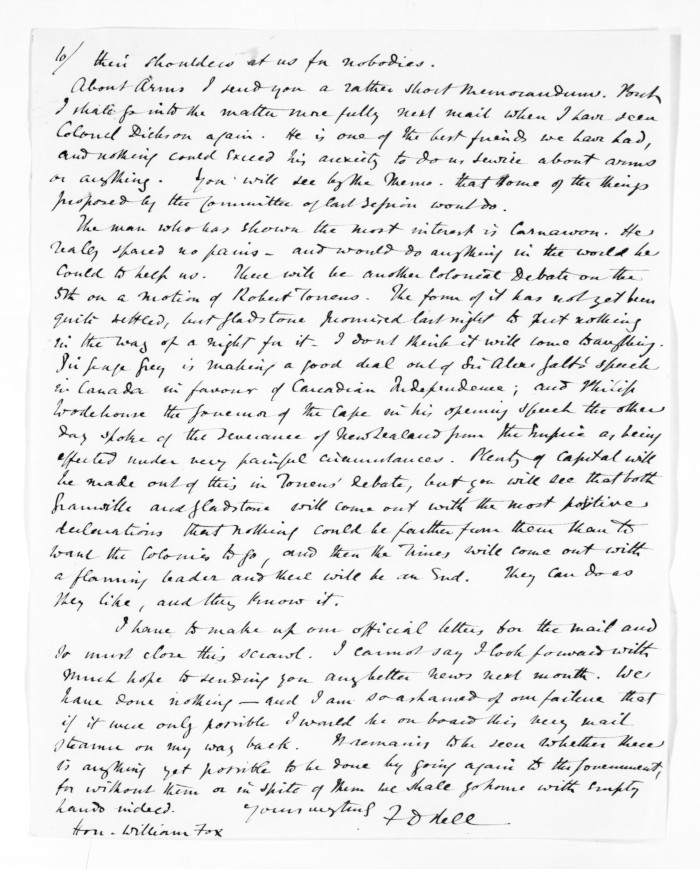 10/ their shoulders at us for nobodies.
About Arms I send you a rather short Memorandum.
I shall go into the matter more fully next mail when I have seen
Colonel Dickson again. He is one of the best friends we have had,
and nothing could exceed his anxiety to do us service about arms
or anything. You will see by the Memo. that some of the things
proposed by the Committee of last Session wont do.
The man who has shown the most interest is Carnarvon. He
really spared no pains - and would do anything in the world he
could to help us. There will be another Colonial Debate on the
5th on a motion of Robert Torrens. The form of it has not yet been
quite settled, but Gladstone promised last night to put nothing
in the way of a night for it. I dont think it will come to anything.
Sir George Grey is making a good deal out of Sir Alexr Galt's speech
in Canada in favour of Canadian Independence; and Philip
Wodehouse the Governor of the Cape in his opening speech the other
day spoke of the severance of New Zealand from the Empire as being
effected under very painful circumstances. Plenty of capital will
be made out of this in Torrens' Debate, but you will see that both
Granville and Gladstone will come out with the most positive
declarations that nothing could be farther from them than to
want the Colonies to go, and then the Times will come out with
a flaming leader and there will be an End. They can do as
they like, and they know it.
I have to make up our official letters for the mail and
so must close this scrawl. I cannot say I look forward with
much hope to sending you any better news next month. We
have done nothing - and I am so ashamed of our failure that
if it were only possible I would be on board this very mail
steamer on my way back. It remains to be seen whether there
is anything yet possible to be done by going again to the Government,
for without them or in spite of them we shall go home with empty
hands indeed. Yours meeting F D Bell
Hon. William Fox